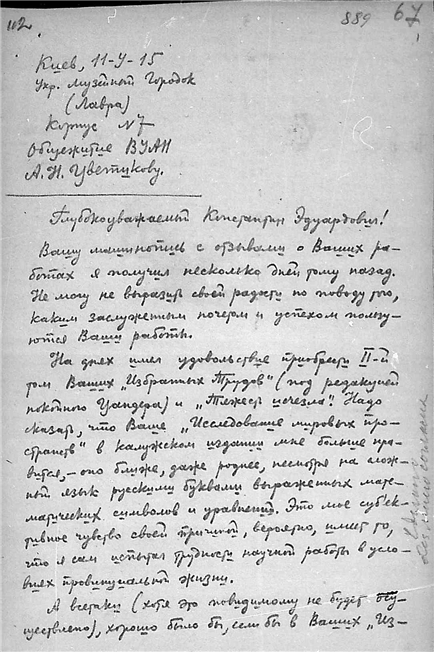 112
889 67
Киев, 11-V-15
Укр. Музейный Городок
(Лавра)
Корпус N7
Общежитие ВУАН
А. Н. Цветикову.
Глубокоуважаемый Константин Эдуардович!
Вашу машинопись с отзывами о Ваших ра-
ботах я получил несколько дней тому назад.
Не могу не выразить своей радости по поводу того,
каким заслуженным почетом и успехом пользу-
ются Ваши работы.
На днях имел удовольствие приобрести II-й
том Ваших „Избранных Трудов" (под редакцией
покойного Цандера) и „Тяжесть исчезла". Надо
сказать, что Ваше „Исследование мировых про-
странств" в калужском издании мне больше нра-
вится, – оно ближе, даже роднее, несмотря на слож-
ный язык русскими буквами выраженных мате-
матических символов и уравнений. Это мое субъек-
тивное чувство своей причиной, вероятно, имеет то,
что я сам испытал трудности научной работы в усло-
виях провинциальной жизни.
А всетаки (хотя это повидимому не будет осу-
ществлено), хорошо было бы, если бы в Ваших „Из-